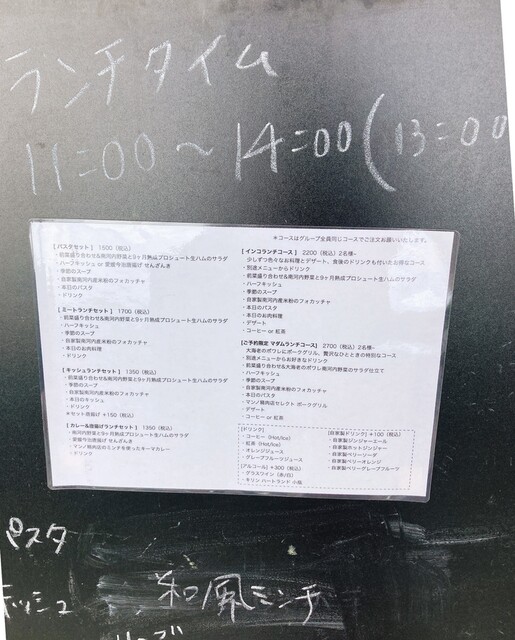 ランチタイム
11:00〜14:00(13:00
＊コースはグループ全員同じコースでご注文お願いいたします。
[ パスタセット ] 1500（税込）
・前菜盛り合わせ&南河内野菜と9ヶ月熟成プロシュート生ハムのサラダ
・ハーフキッシュ or 愛媛今治唐揚げ せんざんき
・季節のスープ
・自家製南河内産米粉のフォカッチャ
・本日のパスタ
・ドリンク
[ ミートランチセット ] 1700（税込）
・前菜盛り合わせ&南河内野菜と9ヶ月熟成プロシュート生ハムのサラダ
・ハーフキッシュ
・季節のスープ
・自家製南河内産米粉のフォカッチャ
・本日のお肉料理
・ドリンク
[ キッシュランチセット ] 1350（税込）
・前菜盛り合わせ&南河内野菜と9ヶ月熟成プロシュート生ハムのサラダ
・季節のスープ
・自家製南河内産米粉のフォカッチャ
・本日のキッシュ
・ドリンク
＊セット唐揚げ +150（税込）
[ カレー&唐揚げランチセット ] 1350（税込）
・南河内野菜と9ヶ月熟成プロシュート生ハムのサラダ
・愛媛今治唐揚げ せんざんき
・マンノ精肉店のミンチを使ったキーマカレー
・ドリンク
[ インコランチコース ] 2200（税込）2名様~
少しずつ色々なお料理とデザート、食後のドリンクも付いたお得なコース
・別途メニューからドリンク
・前菜盛り合わせ&南河内野菜と9ヶ月熟成プロシュート生ハムのサラダ
・ハーフキッシュ
・季節のスープ
・自家製南河内産米粉のフォカッチャ
・本日のパスタ
・本日のお肉料理
・デザート
・コーヒー or 紅茶
[ご予約限定 マダムランチコース] 2700（税込）2名様~
大海老のポワレにポークグリル、贅沢なひとときの特別なコース
・別途メニューからお好きなドリンク
・前菜盛り合わせ&大海老のポワレ南河内野菜のサラダ仕立て
・ハーフキッシュ
・季節のスープ
・自家製南河内産米粉のフォカッチャ
・本日のパスタ
・マンノ精肉店セレクト ポークグリル
・デザート
・コーヒー or 紅茶
[ドリンク]
・コーヒー（Hot/Ice）
・紅茶（Hot/Ice）
・オレンジジュース
・グレープフルーツジュース
[アルコール] +300（税込）
・グラスワイン（赤/白）
・キリン ハートランド 小瓶
[自家製ドリンク] +100（税込）
・自家製ジンジャーエール
・自家製ホットジンジャー
・自家製ベリーソーダ
・自家製ベリーオレンジ
・自家製ベリーグレープフルーツ
パスタ
和風ミンチ